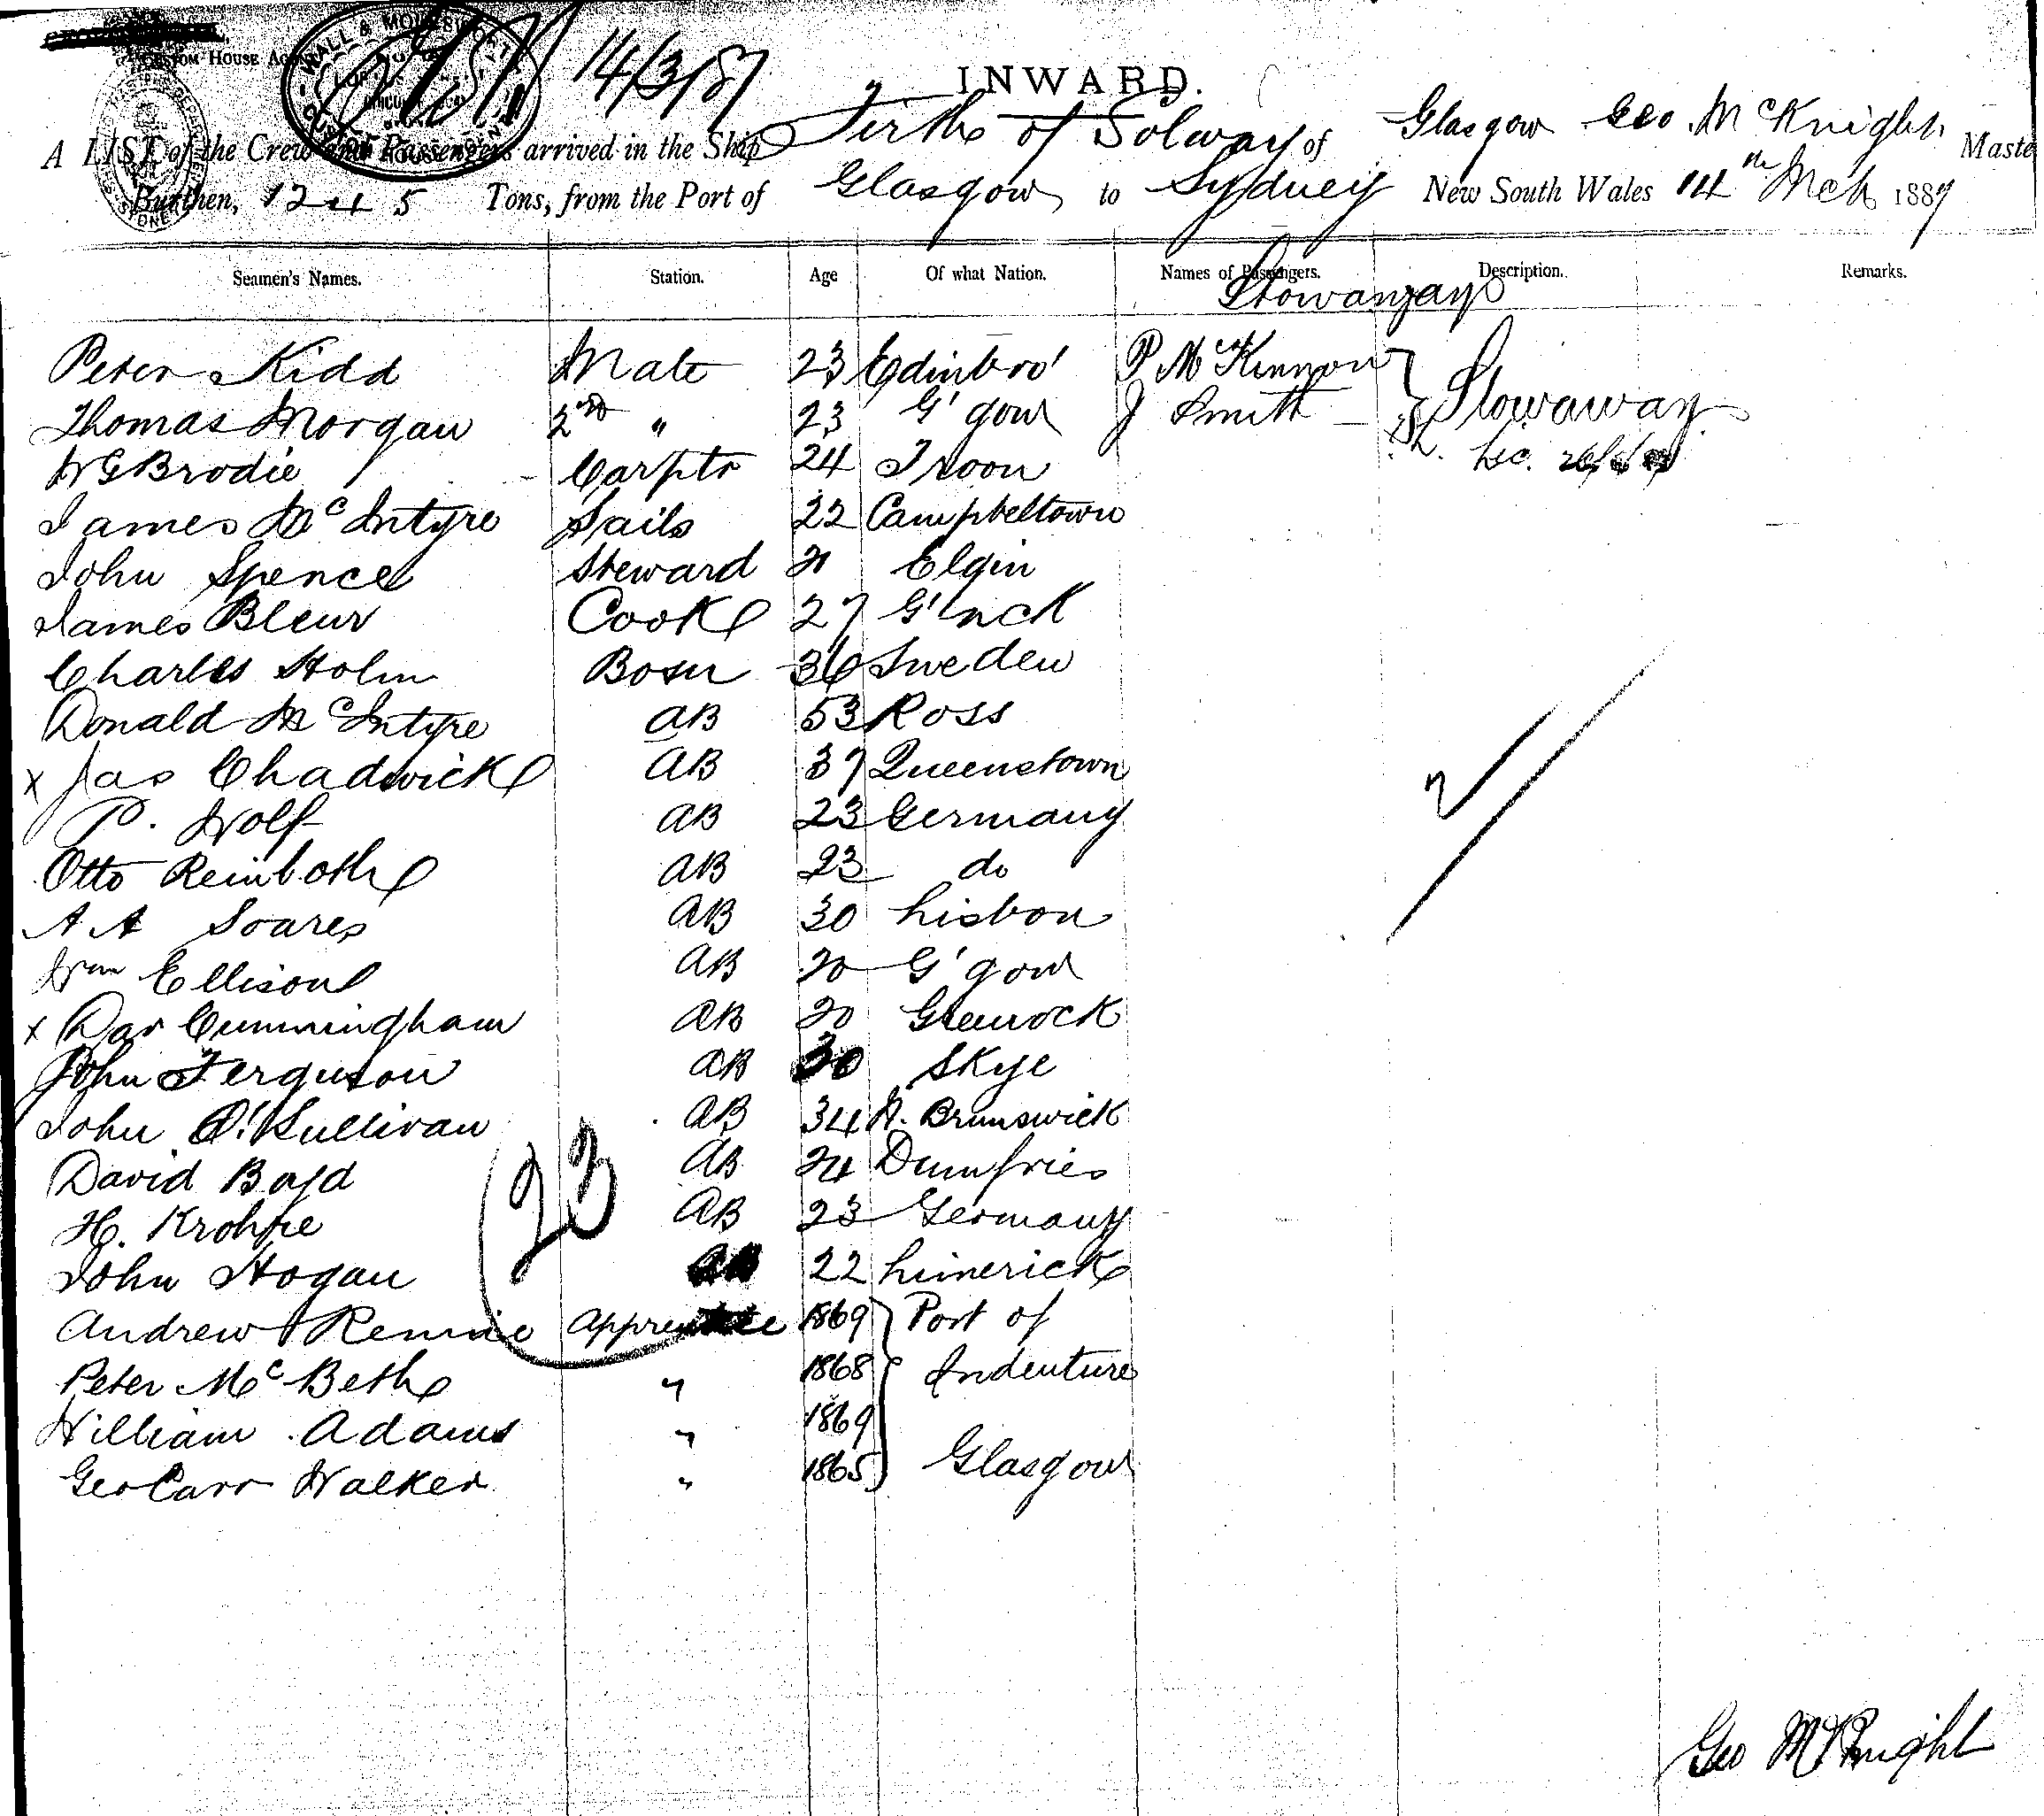 CUSTOM HOUSE
14/3/87
INWARD.
A LIST of the Crew and Passengers arrived in the Ship Firth of Solway of Glasgow Geo. McKnight, Maste
Burthen, 1245 Tons, from the Port of Glasgow to Sydney New South Wales 14th Mch 1887
Seamen's Names. Station. Age Of what Nation. Names of Passengers. Description. Remarks.
Stowaways
Peter Kidd Mate 23 Edinbro' P McKinnon
Thomas Morgan 2nd " 23 G'gow J Smith Stowaway
W G Brodie Carptr 24 Troon
James McIntyre Sails 22 Campbeltown
John Spence Steward 21 Elgin
James Blew Cook 27 G'nck
Charles Holm Bosn 36 Sweden
Donald McIntyre AB 53 Ross
x Jas Chadwick AB 37 Queenstown
P. Wolf AB 23 Germany
Otto Reinboth AB 23 do
A A Soares AB 30 Lisbon
Wm Ellison AB 20 G'gow
x Dav Cunningham AB 20 Greenock
John Ferguson AB 30 Skye
John O'Sullivan AB 34 N. Brunswick
David Boyd AB 24 Dumfries
H. Krohne AB 23 Germany
23
John Hogan AB 22 Limerick
Andrew Rennie Apprentice 1869 Port of
Peter McBeth " 1868 Indenture
William Adams " 1869
Geo Carr Walker " 1865 Glasgow
Geo McKnight